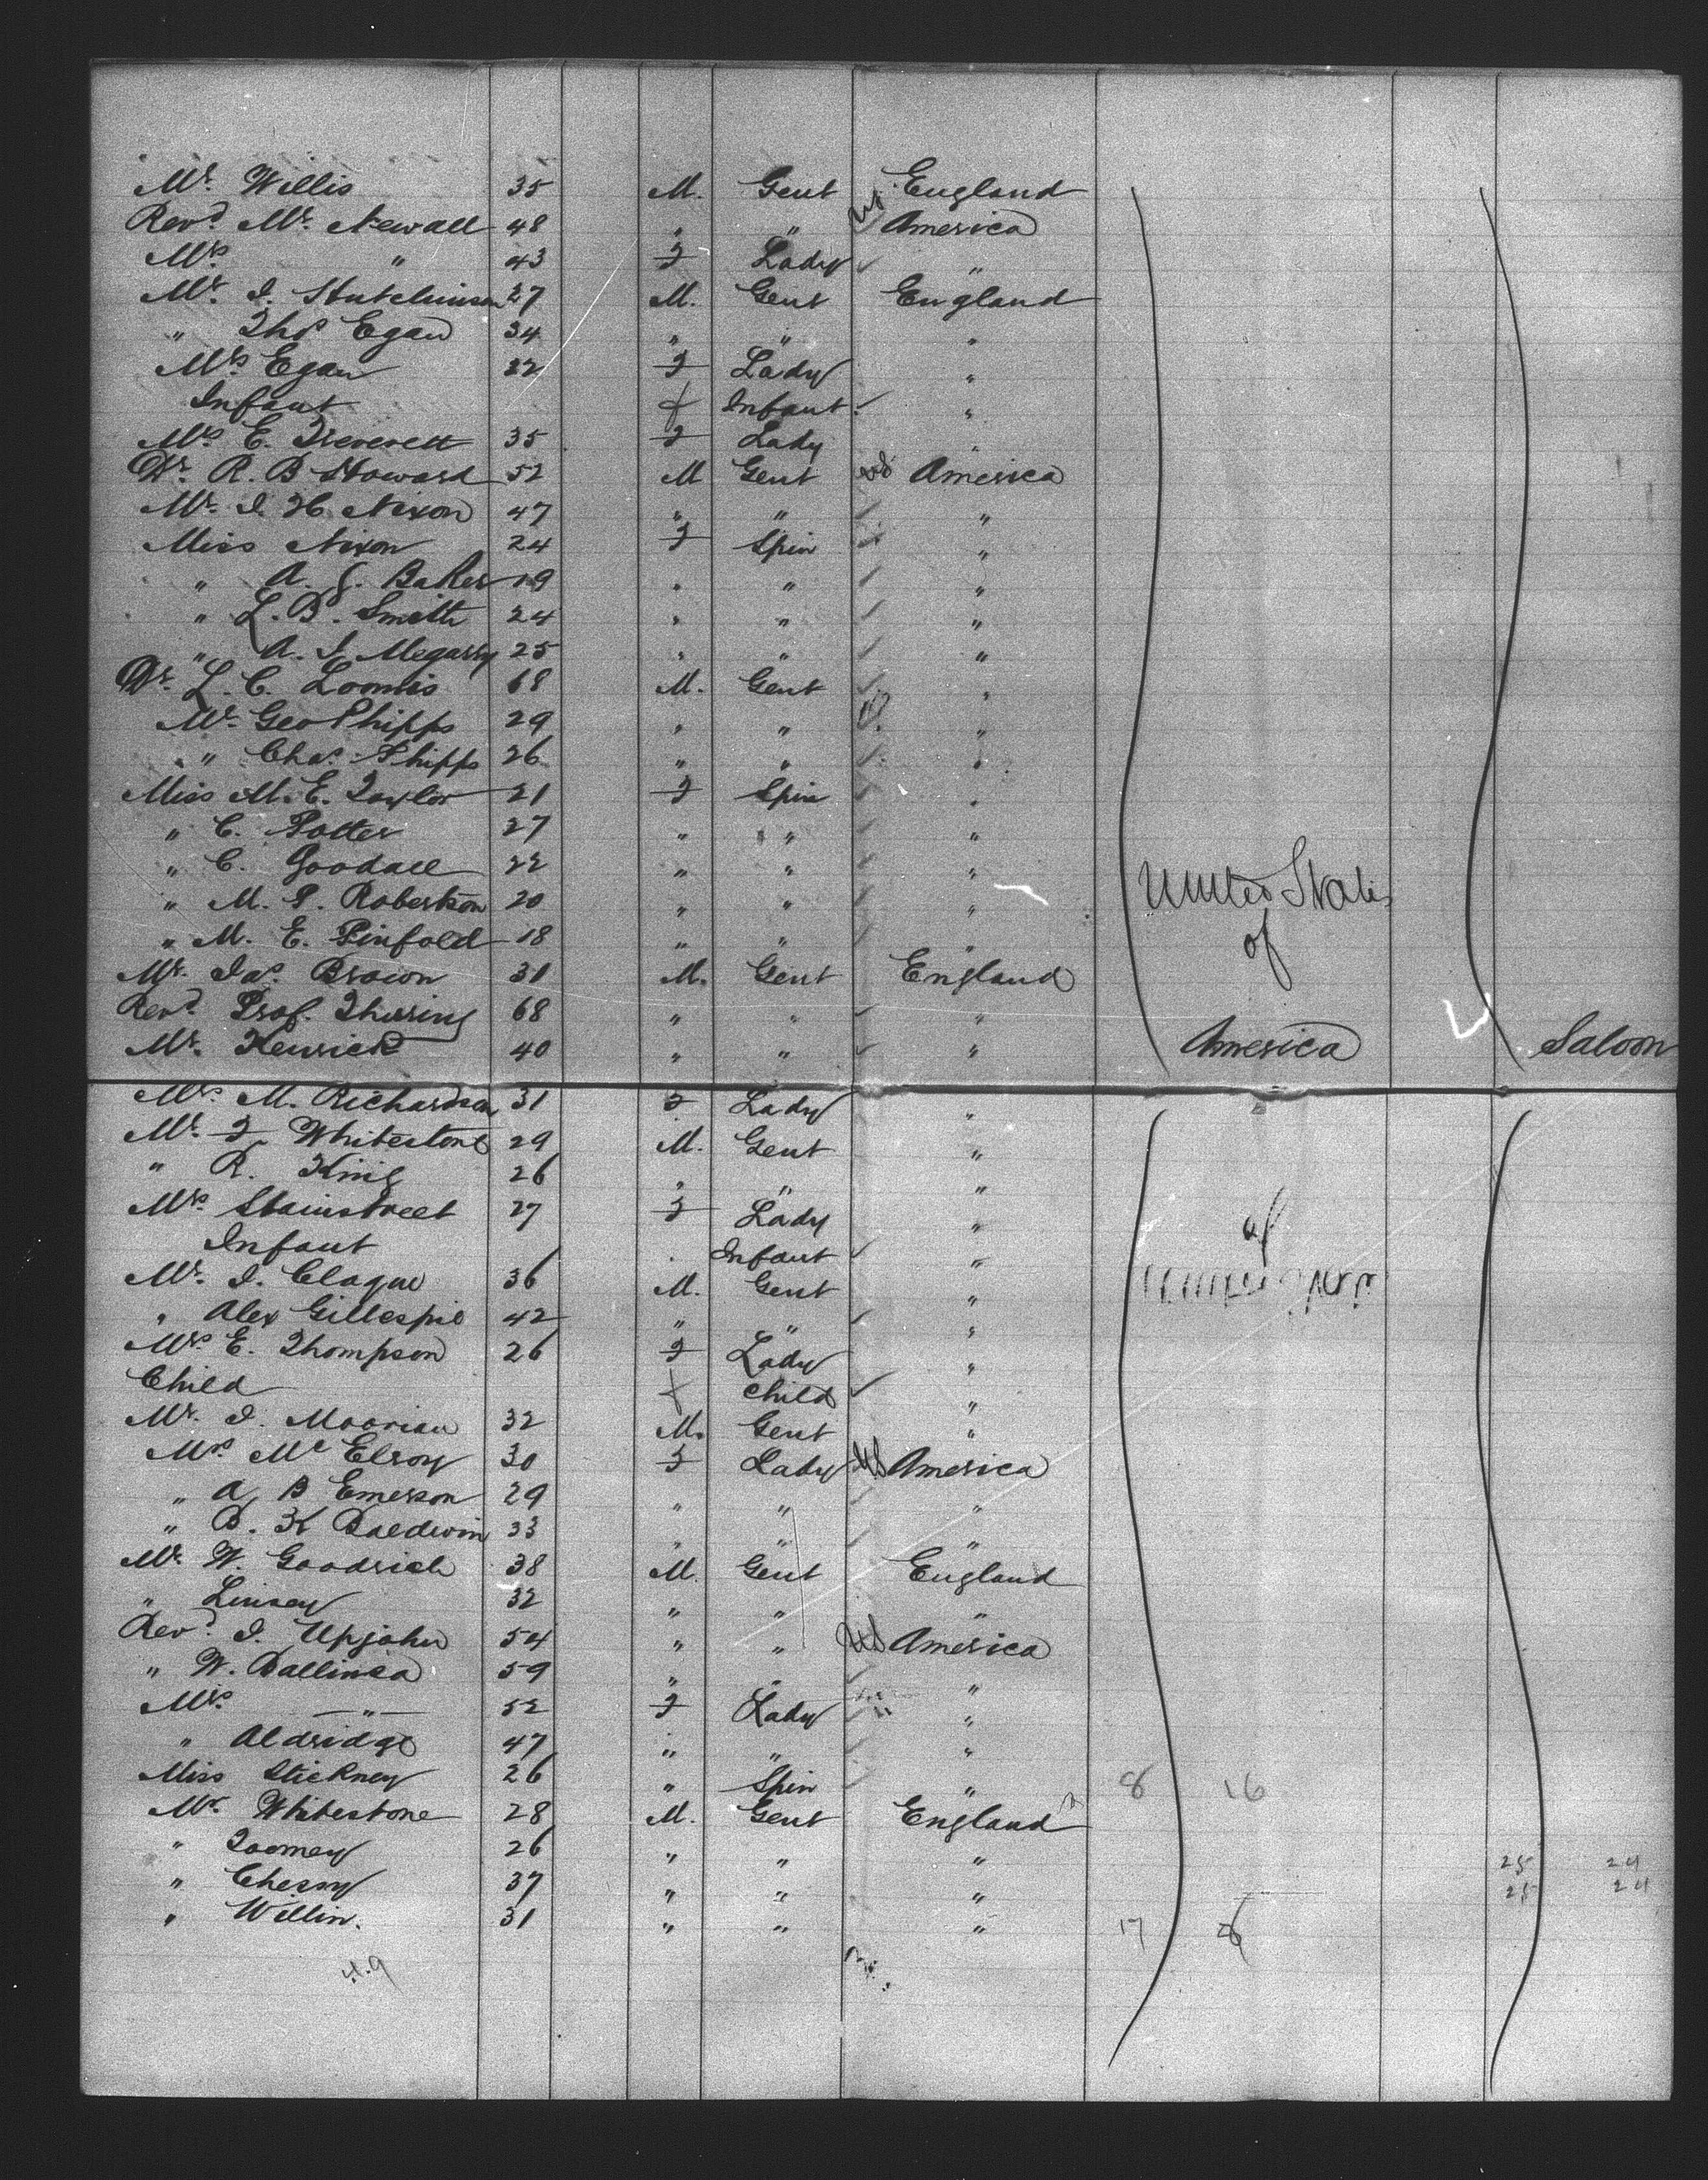 Mr. Willis 35 M. Gent England
Revd. Mr. Newall 48 " " US America
Mrs " 43 F Lady "
Mr. J. Hutchinson 27 M. Gent England
" Thos Egan 34 " " "
Mrs Egan 22 F Lady "
Infant f Infant "
Mrs E. Treverett 35 F Lady "
Dr. R. B Howard 52 M Gent US America
Mr. J. H. Nixon 47 " " "
Miss Nixon 24 F Spin "
" A. J. Baker 19 " " "
" L. B. Smith 24 " " "
" A. J. Megarry 25 " " "
Dr. L. C. Loomis 68 M. Gent "
Mr. Geo Phipps 29 " " "
" Chas. Phipps 26 " " "
Miss M. E. Taylor 21 F Spin "
" C. Potter 27 " " "
" C. Goodall 22 " " " United States
" M. P. Robertson 20 " " "
" M. E. Pinfold 18 " " " of
Mr. Jas. Brown 31 M. Gent England
Revd. Prof. Thring 68 " " "
Mr. Kenrick 40 " " " America Saloon
Mrs. M. Richardson 31 F Lady "
Mr. F. Whitestone 29 M. Gent "
" R. King 26 " " "
Mrs. Stainstreet 27 F Lady "
Infant Infant "
Mr. J. Clague 36 M. Gent "
" Alex Gillespie 42 " " "
Mrs E. Thompson 26 F Lady "
Child f Child "
Mr. J. Moorian 32 M. Gent "
Mrs Mc Elroy 30 F Lady US America
" A. B Emerson 29 " " "
" B. K Baldwin 33 " " "
Mr. W. Goodrich 38 M. Gent England
" Linsey 32 " " "
Revd. J. Upjohn 54 " " US America
" W. Ballinca 59 " " "
Mrs. " 52 F Lady "
" Aldridge 47 " " "
Miss Stickney 26 " Spin " 8 16
Mr. Whitestone 28 M. Gent England
" Toomey 26 " " " 25 24
" Cherry 37 " " " 25 24
" Willin. 31 " " " 17 8
49